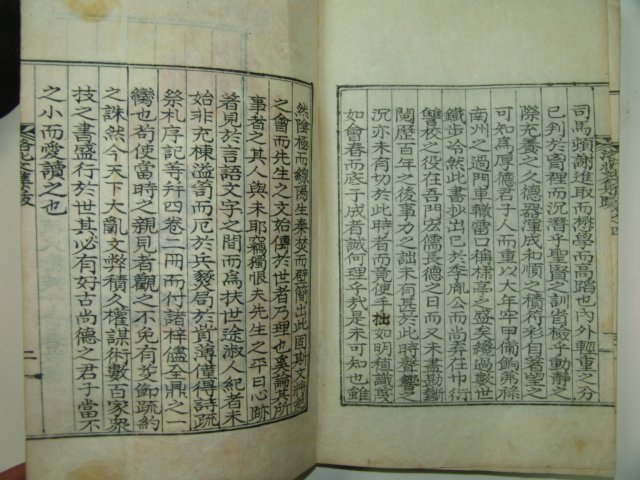 司馬頭謝進取而構亭而高蹈也內外輕重之分
已判於胷裡而沉潛乎聖賢之訓省檢乎動靜之
際充養之久德器渾成和順之積符彩自著望之
可知爲厚德君子人而重以大年牢甲備飭弗徐
南州之過門車轍雷口稱棣亭之盛矣纔過數世
鐵步冷然此書出於李胤公而尚弆在巾衍
讐校之役在吾門宏儒長德之日而又未盡勘斷
閱歷百年之後事力之詘未有甚於此時聲響之
沉亦未有切於此時者而竟使手拙如明植識蔑
如會春而底于成者誠何理乎我是未可知也雖
然陰極而線陽生秦焚而壁簡出此固斯文
之會而先生之文始傳於世者乃理也奚論其所
事者之其人與未耶竊獨恨夫先生之平日心跡
著見於言語文字之間而爲扶世途淑人紀者未
始非充棟溢笥而厄於兵燹局於貲薄僅得詩疏
祭札序記等幷四卷二冊而付諸梓儘全鼎之一
臠也苟使當時之親見者觀之不免有
疏約
之誅然今天下大亂文弊積久權謀術數百家衆
技之書盛行於世其必有好古尚德之君子當不
之小而愛讀之也
二